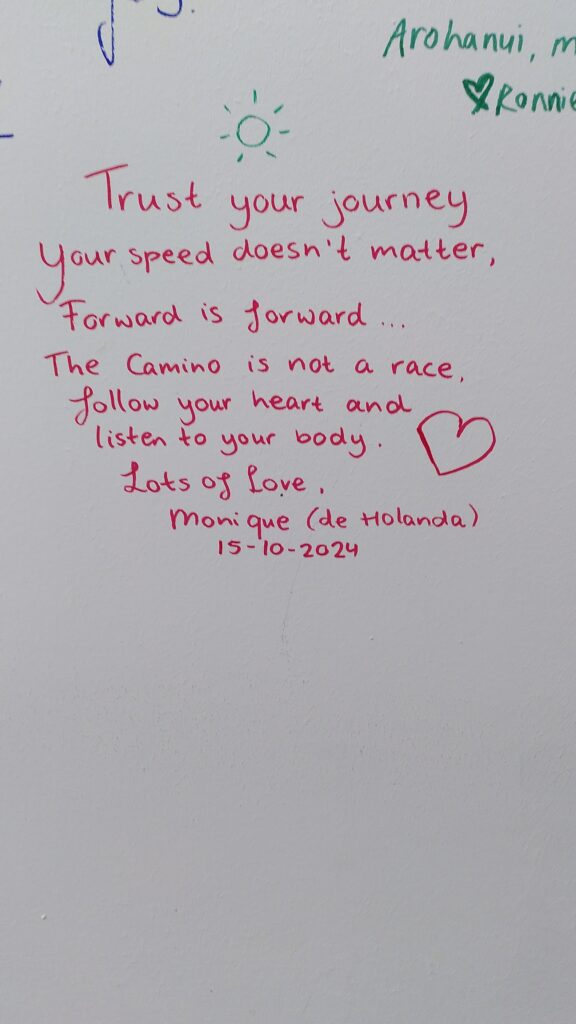 Arohanui,
Ronnie
Trust your journey
Your speed doesn't matter,
Forward is forward...
The Camino is not a race,
follow your heart and
listen to your body.
Lots of Love,
Monique (de Holanda)
15-10-2024